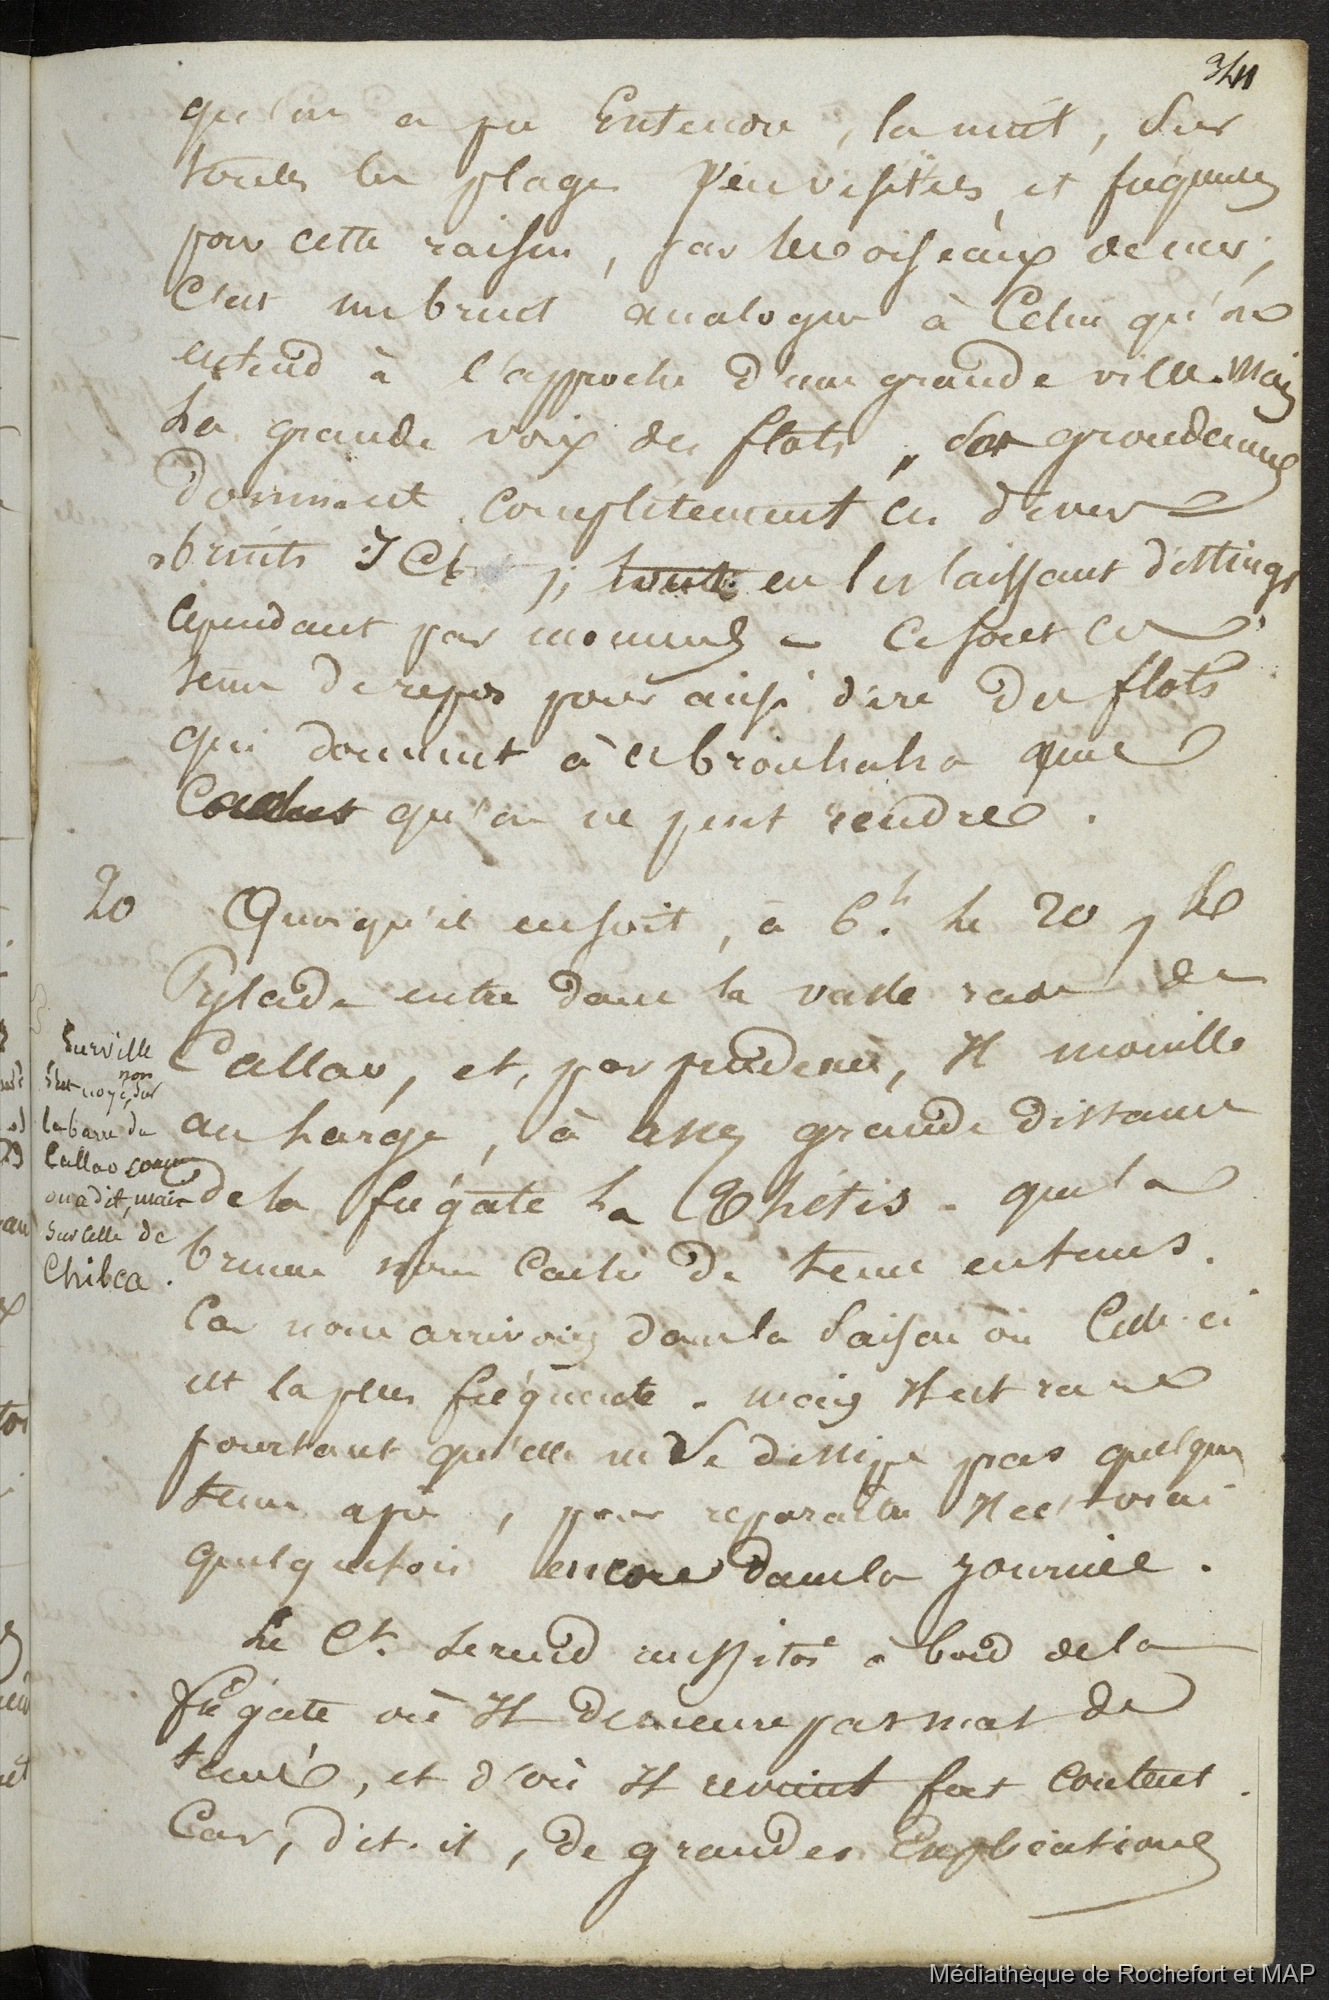 341
qu'on a pu Entendre, la nuit, Sur
toutes les plages peu visitées et fréquentées
pour cette raison, par les oiseaux de mer;
C'est un bruit analogue à Celui qu'on
entend à l'approche d'une grande ville. Mais
La grande voix des flots, grondement
Dominent complètement ces divers
bruits Ici, en les laissant disting
cependant par moments - Ce sont ces
tems de repos pour ainsi dire des flots
qui donnent à ce brouhaha une
qu'on ne peut rendre.
20 Quoiqu'il en soit, à 6.h le 20, le
Pylade entre dans la vaste rade de
Callao, et, par prudence, Il mouille
au large, à assez grande distance
de la frégate La Thétis - que la
brume nous cache de tems en tems.
Car nous arrivons dans la Saison où Celle-ci
est la plus fréquente - mais Il est rare
pourtant qu'elle ne Se dissipe pas quelques
tems après, pour reparaitre Il est vrai
quelquefois encore dans la journée.
Le Ct. Se rend aussitôt à bord de la
frégate où Il demeure pas mal de
tems, et d'où Il revient fort content.
Car, dit-il, de grandes Explications
Surville
s'est noyé, non sur
la barre du
Callao comme
on a dit, mais
sur celle de
Chilca.
Médiathèque de Rochefort et MAP